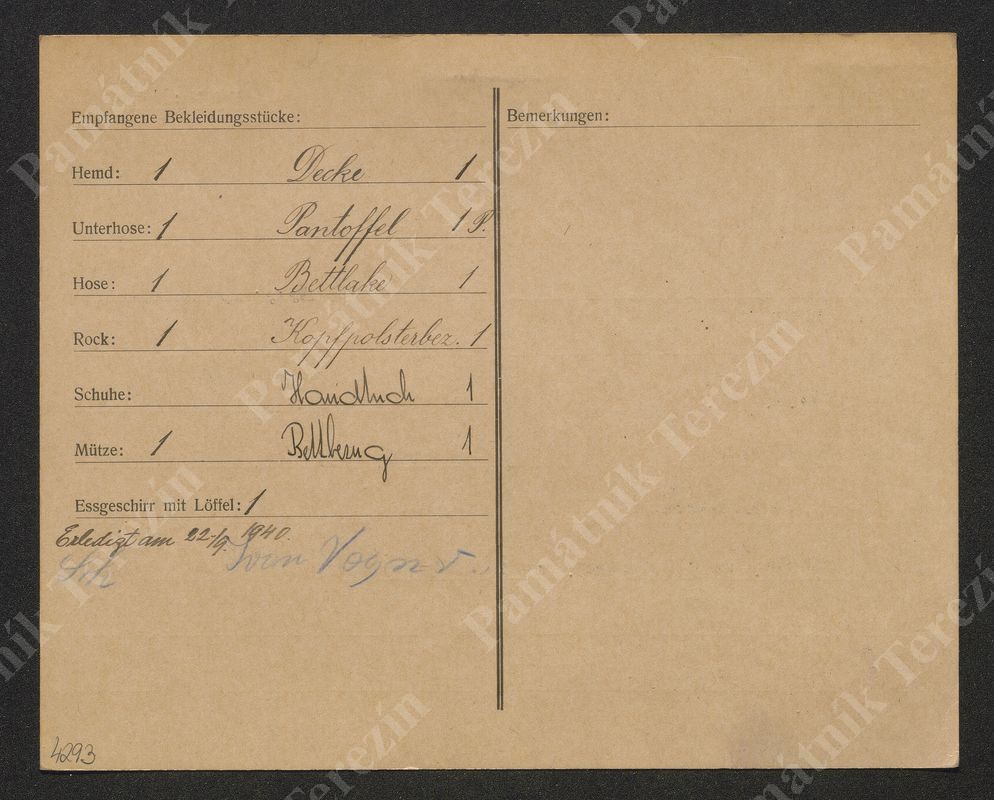 Empfangene Bekleidungsstücke:
Hemd: 1 Decke 1
Unterhose: 1 Pantoffel 1 P.
Hose: 1 Bettlake 1
Rock: 1 Kopfpolsterbez. 1
Schuhe: Handtuch 1
Mütze: 1 Bettbezug 1
Essgeschirr mit Löffel: 1
Erledigt am 22./9. 1940.
4293
Bemerkungen:
Památník Terezín
Památník Terezín
Památník Terezín
Památník Terezín
Památník Terezín
Památník Terezín